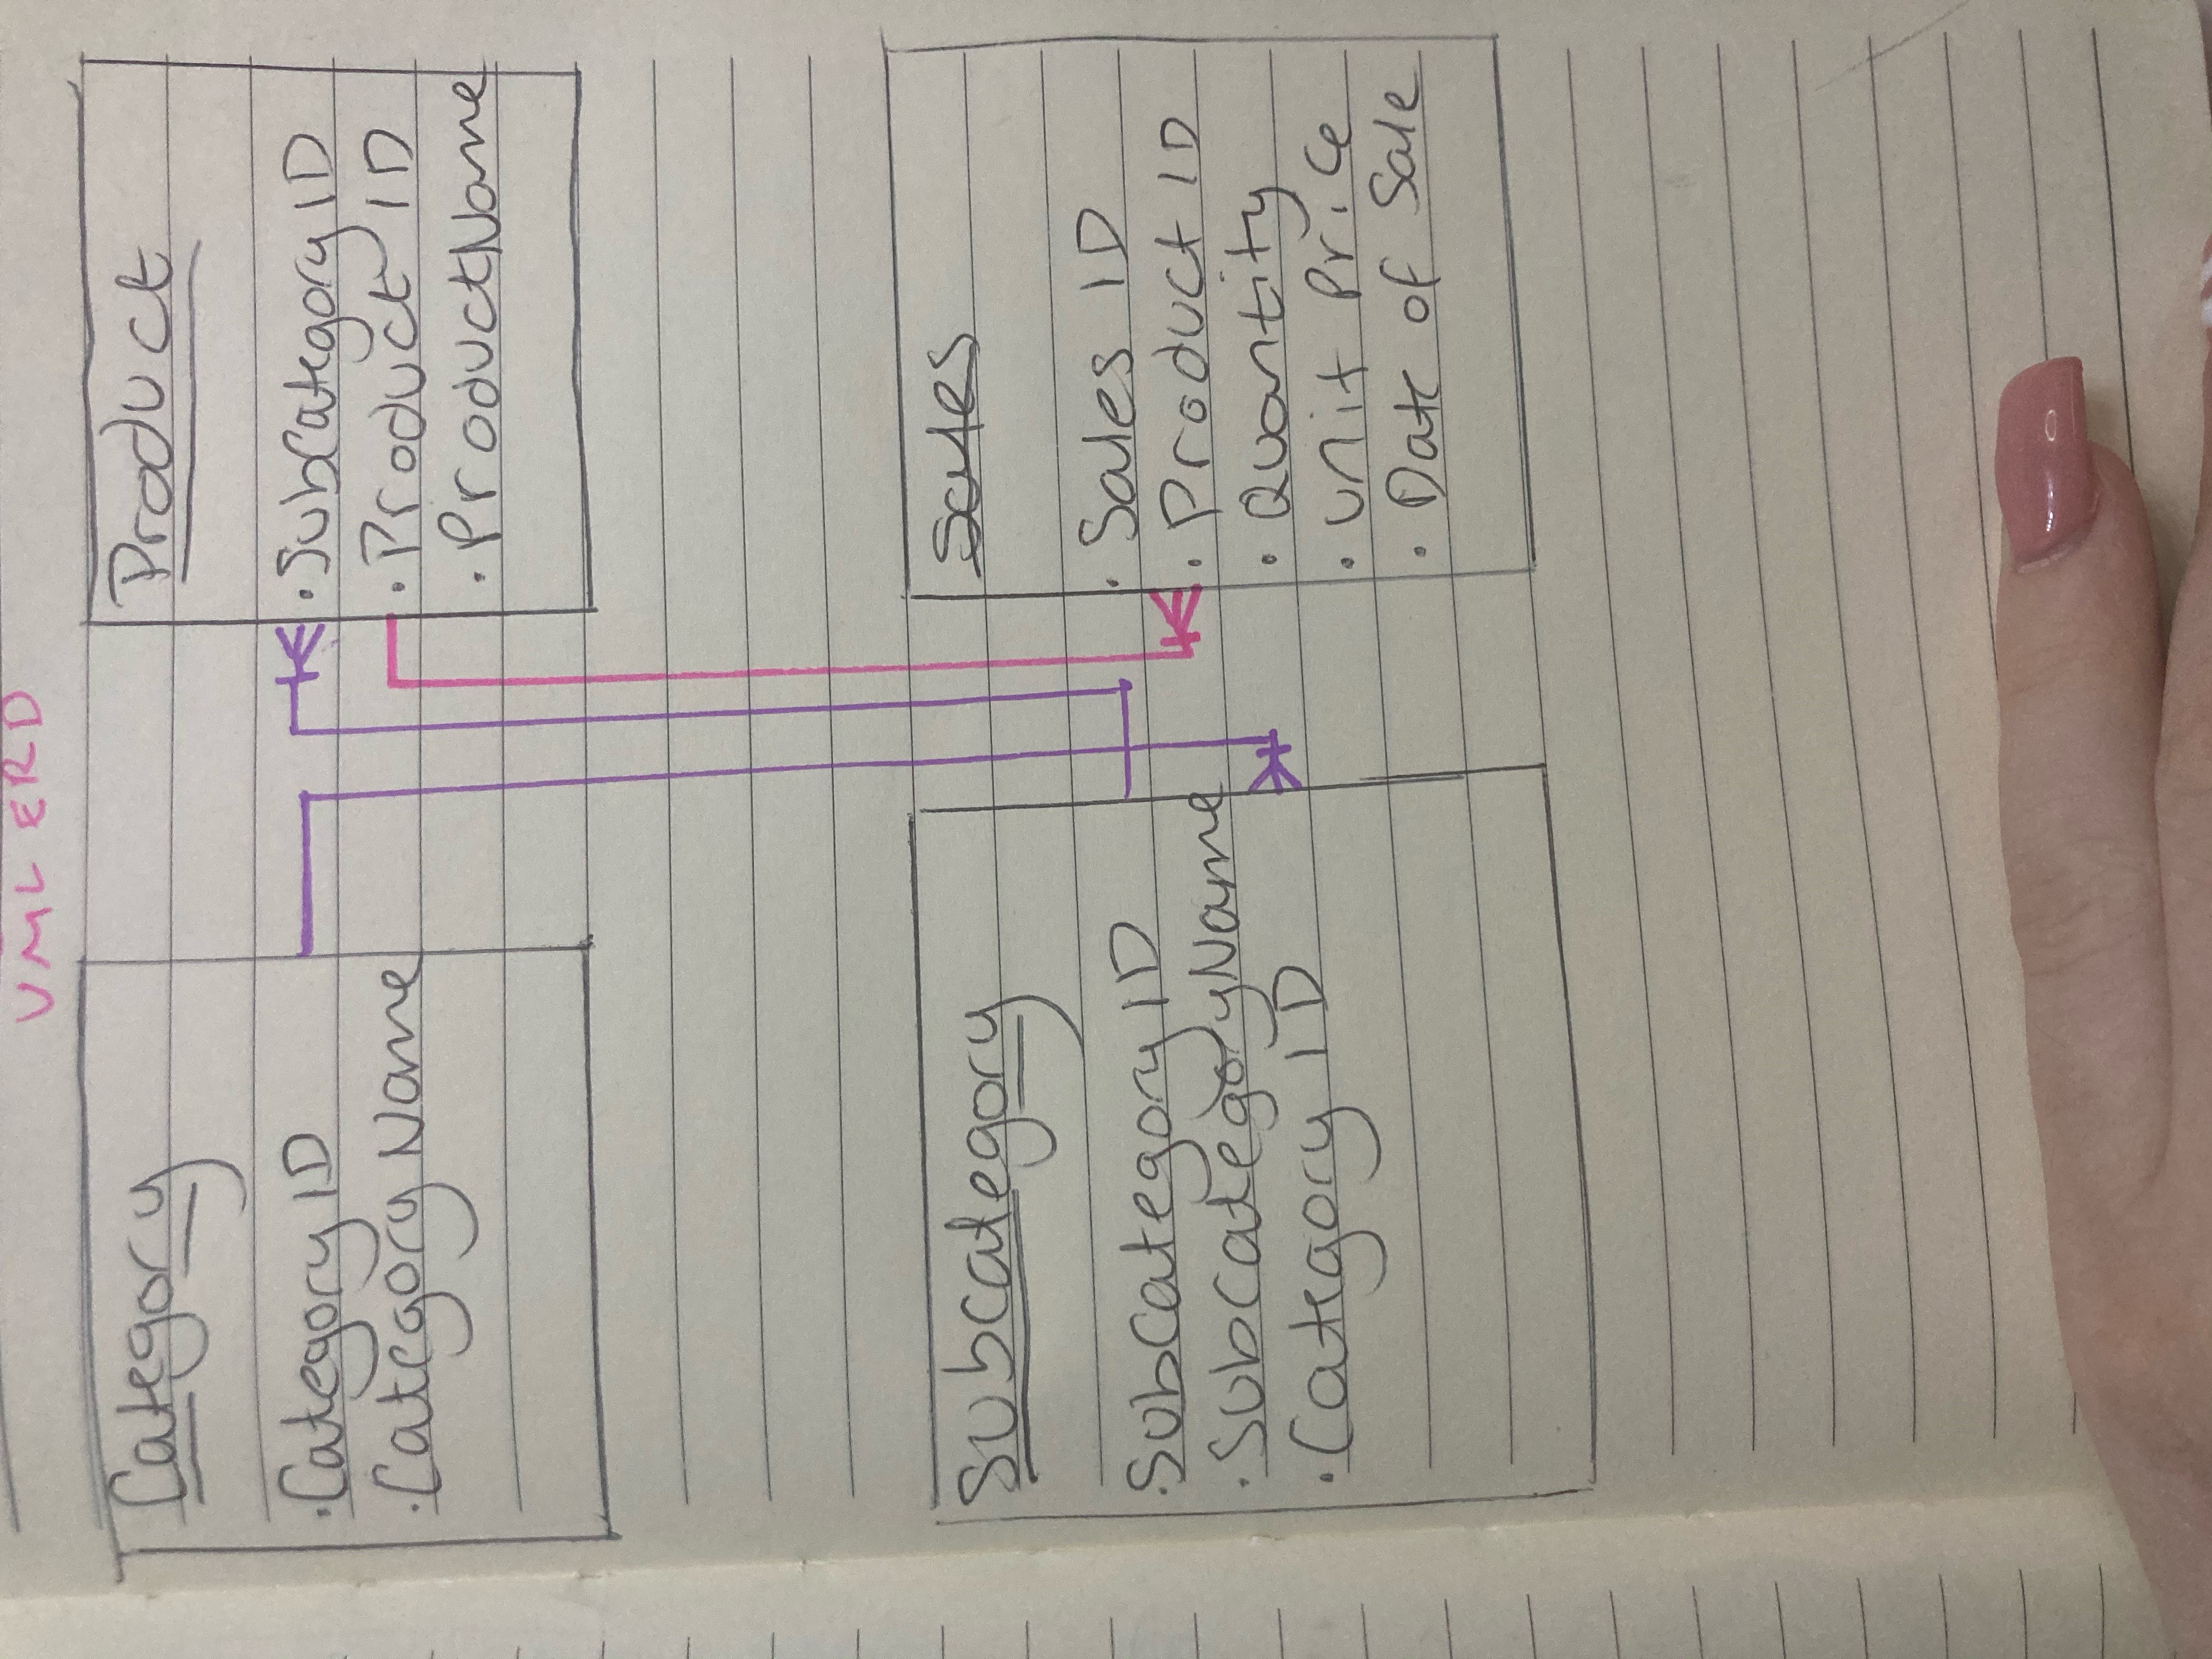 UML ERD
Category
· Category ID
· Category Name
Product
· Subcategory ID
· Product ID
· ProductName
Subcategory
· Subcategory ID
· SubcategoryName
· Category ID
Sales
· Sales ID
· Product ID
· Quantity
· Unit Price
· Date of Sale